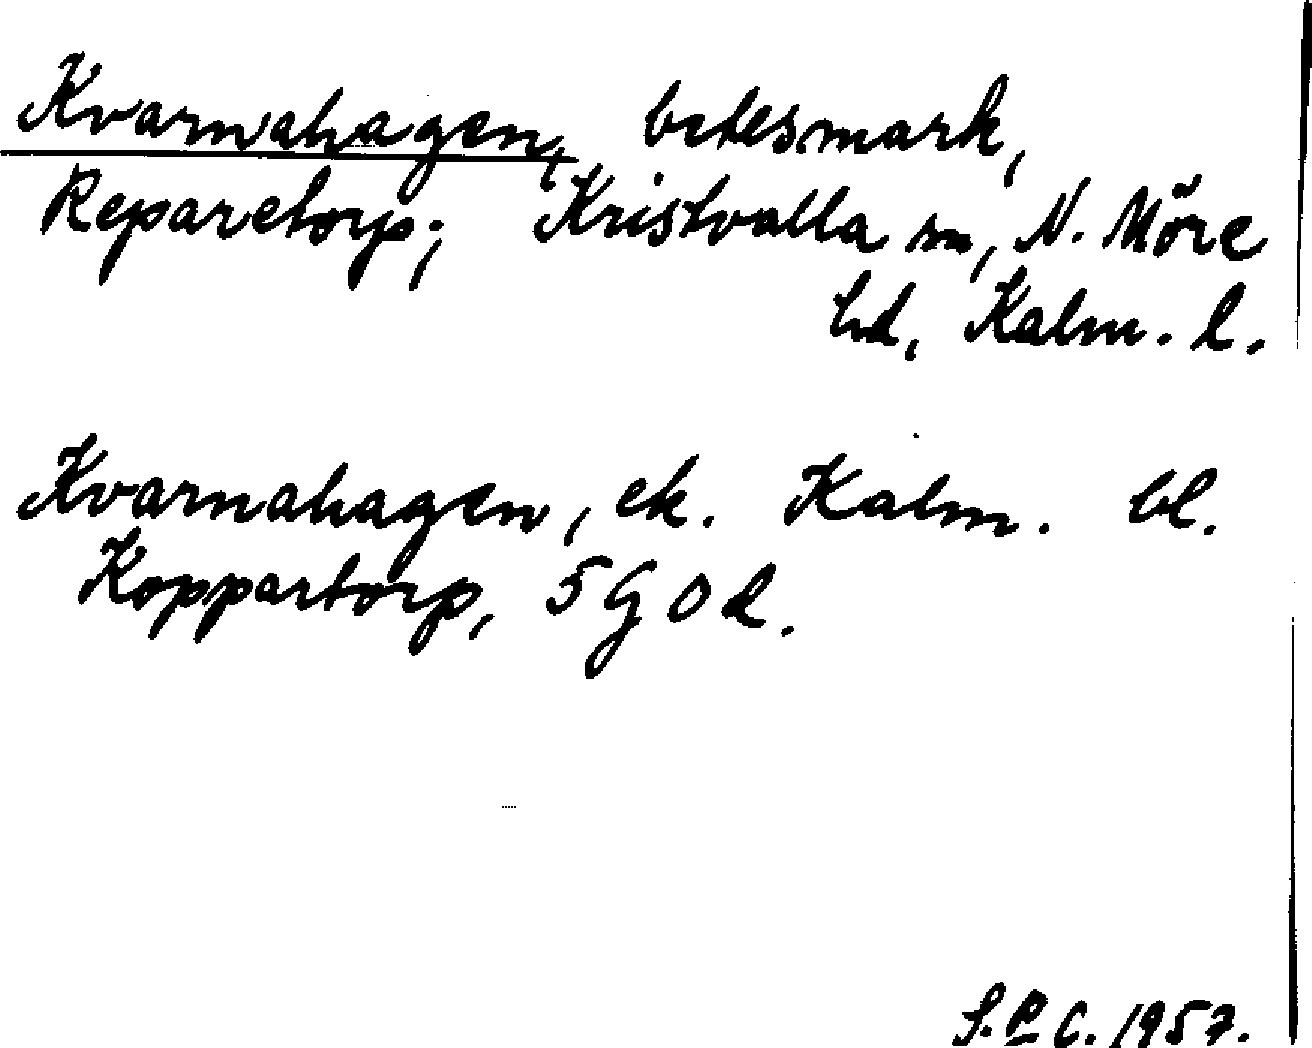 Kvarnahagen, betesmark,
Reparetorp; Kristvalla sn, N. Möre
hd, Kalm. l.
Kvarnahagen, ek. Kalm. bl.
Koppartorp, 5 G 0 d.
S. P C. 1957.